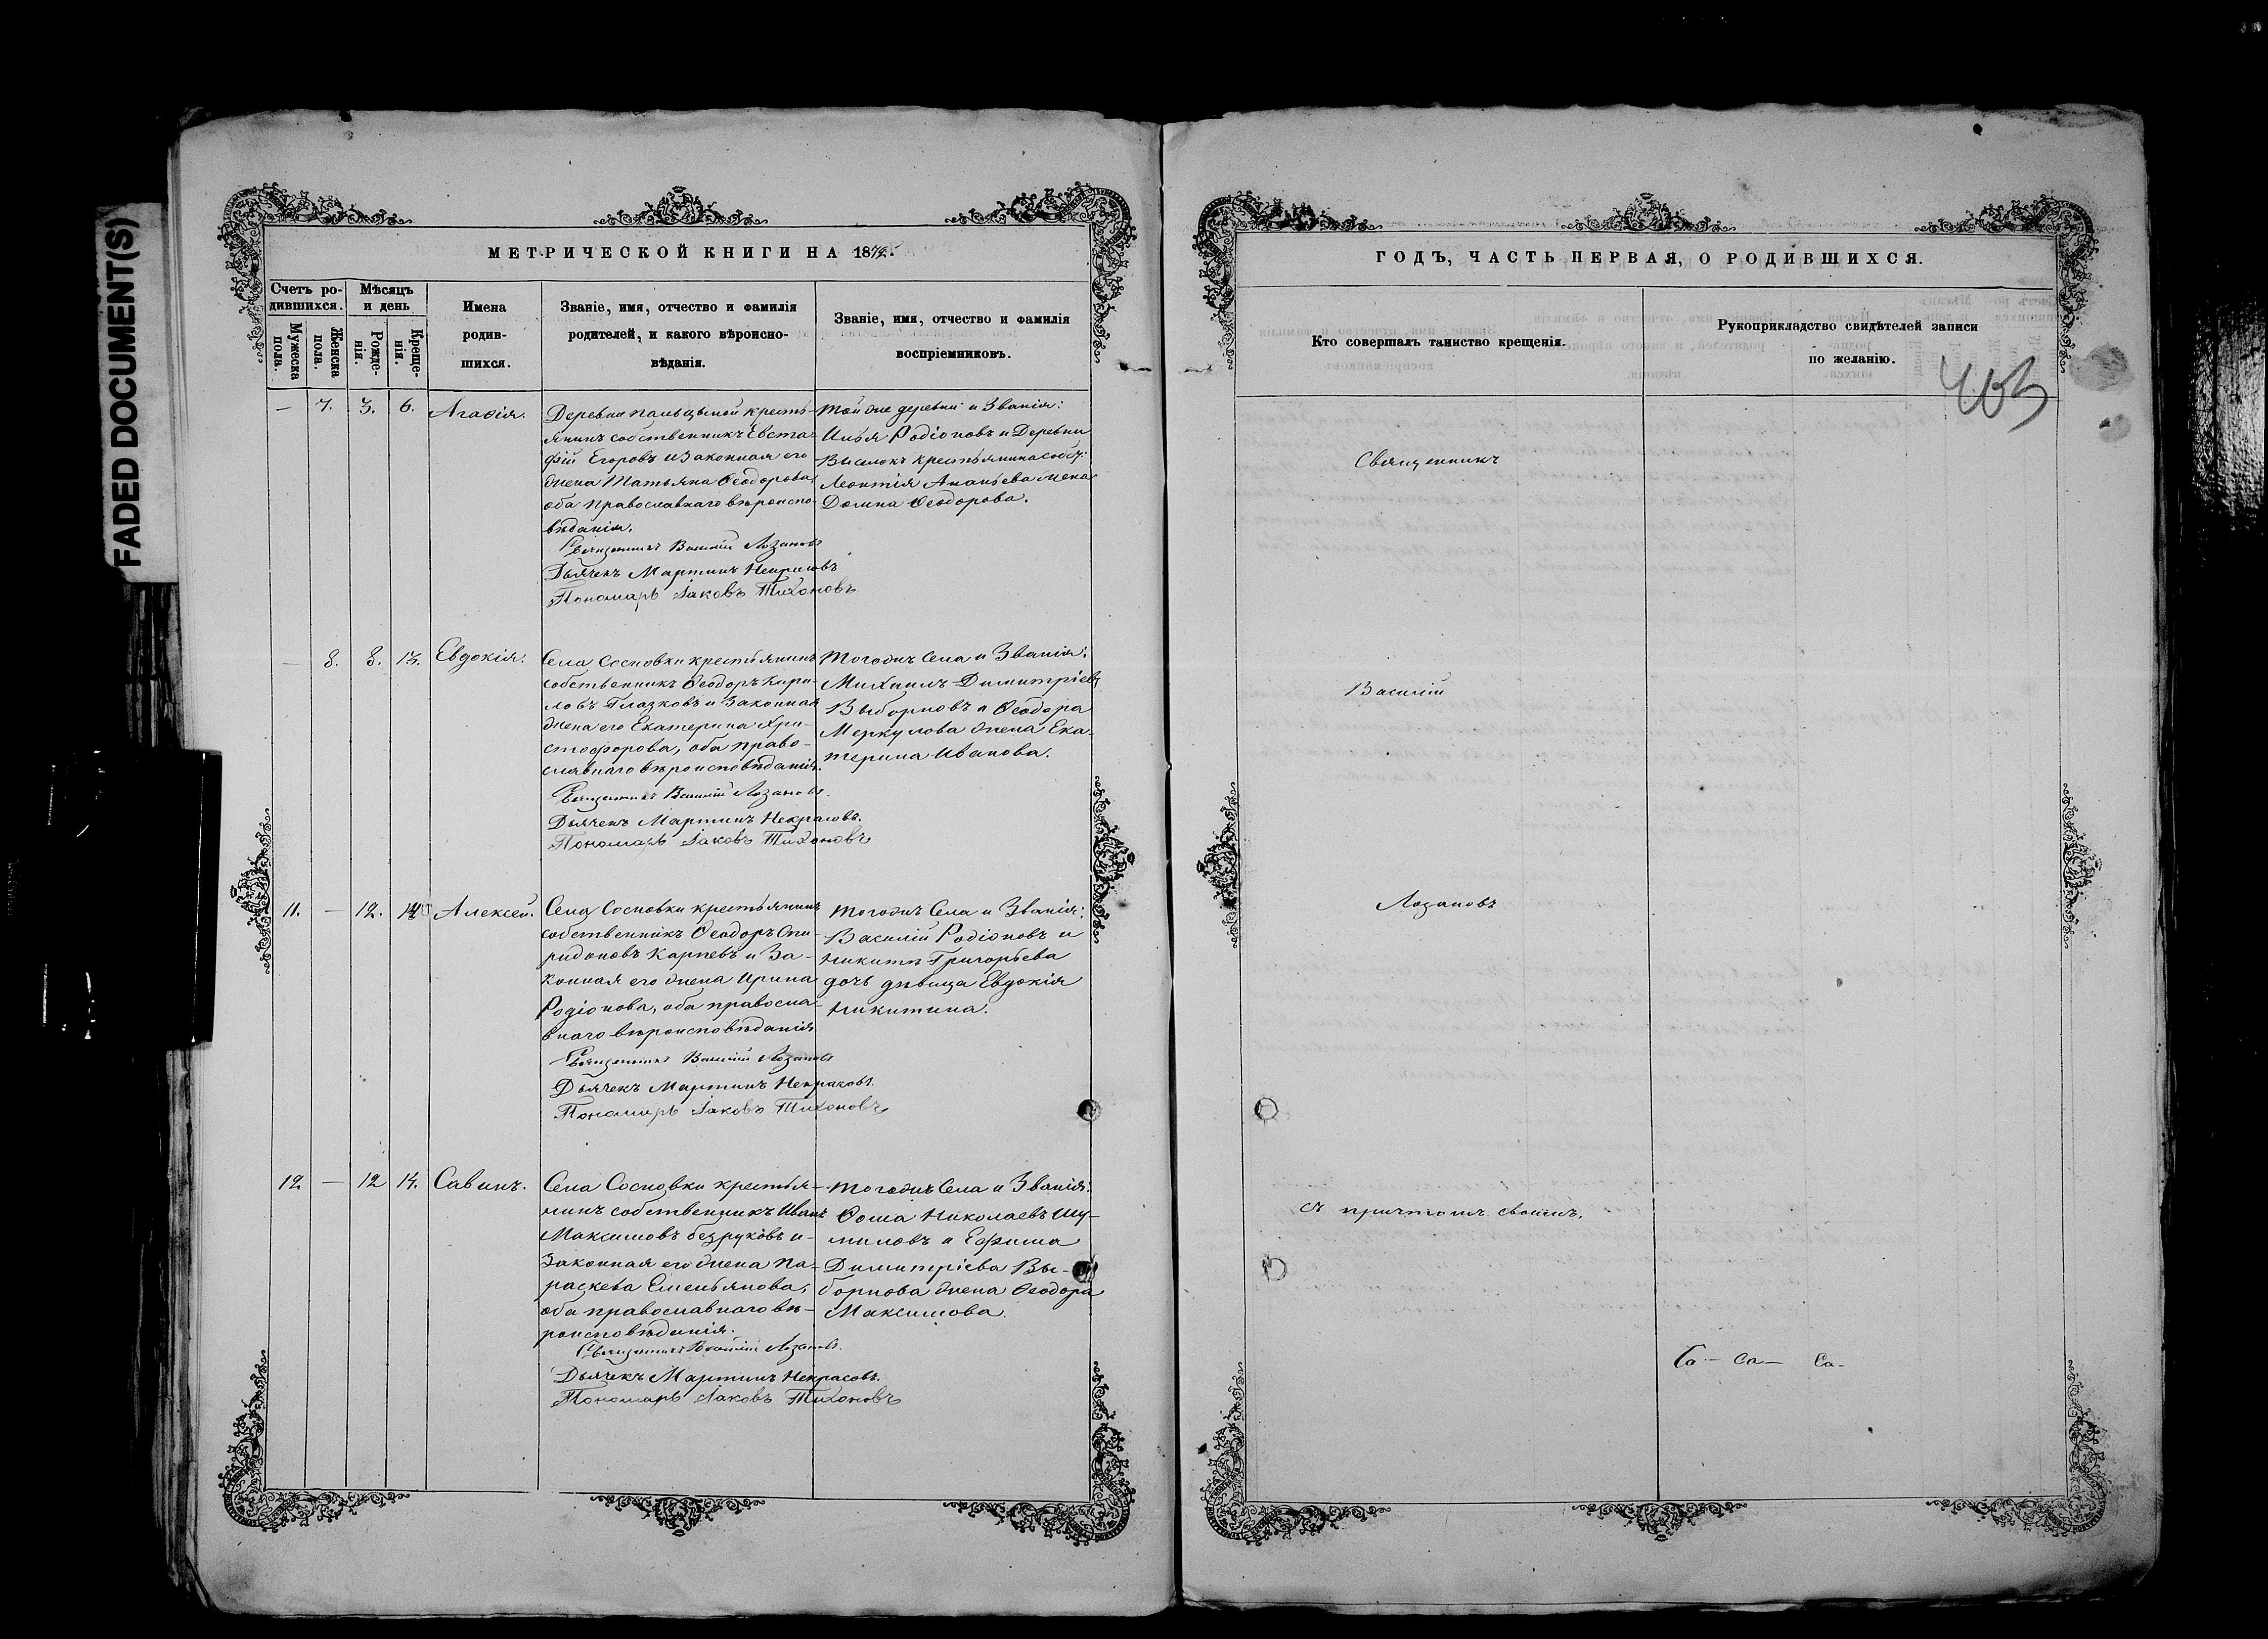 FADED DOCUMENT(S)
МЕТРИЧЕСКОЙ КНИГИ НА 187
Счетъ ро-
дившихся.
Мужеска
пола.
Женска
пола.
Мѣсяцъ
и день
Рожде-
нія.
Креще-
нія.
Имена
родив-
шихся.
Званіе, имя, отчество и фамилія
родителей, и какого вѣроиспо-
вѣданія.
Званіе, имя, отчество и фамилія
воспріемниковъ.
— 7. 3. 6. Агафія.
Деревни Пальцыной кресть-
янинъ собственникъ Евста-
фій Егоровъ и законная его
жена Татьяна Ѳеодорова,
оба православнаго вѣроиспо-
вѣданія.
Священникъ Василій Лозановъ
Дьячекъ Мартинъ Некрасовъ
Пономарь Іаковъ Тихоновъ
Той же деревни и Званія:
Илья Родіоновъ и Деревни
Выселокъ крестьянина собст:
Леонтія Ананьева жена
Домна Ѳеодорова.
— 8. 8. 13. Евдокія.
Села Сосновки крестьянинъ
собственникъ Ѳеодоръ Кири-
ловъ Глазковъ и законная
жена его Екатерина Хри-
стофорова, оба право-
славнаго вѣроисповѣданія.
Священникъ Василій Лозановъ.
Дьячекъ Мартинъ Некрасовъ.
Пономарь Іаковъ Тихоновъ
Тогожъ Села и Званія:
Михаилъ Димитріевъ
Выборновъ и Ѳеодора
Меркулова жена Ека-
терина Иванова.
11. — 12. Алексей.
Села Сосновки крестьянинъ
собственникъ Ѳеодоръ Спи-
ридоновъ Карпевъ и за-
конная его жена Ирина
Родіонова, оба правосла-
внаго вѣроисповѣданія
Священникъ Василій Лозановъ
Дьячекъ Мартинъ Некрасовъ.
Пономарь Іаковъ Тихоновъ
Тогожъ Села и Званія:
Василій Родіоновъ и
Никиты Григорьева
дочь дѣвица Евдокія
Никитина.
12 — 12 14. Савинъ.
Села Сосновки крестья-
нинъ собственникъ Иванъ
Максимовъ безруковъ и
законная его жена Па-
раскева Емельянова,
оба православнаго вѣ-
роисповѣданія.
Священникъ Василій Лозановъ.
Дьячекъ Мартинъ Некрасовъ.
Пономарь Іаковъ Тихоновъ
Тогожъ Села и Званія:
Ѳома Николаевъ Шу-
миловъ и Ефима
Димитріева Вы-
борнова жена Ѳеодора
Максимова.
ГОДЪ, ЧАСТЬ ПЕРВАЯ, О РОДИВШИХСЯ.
Кто совершалъ таинство крещенія.
Рукоприкладство свидѣтелей записи
по желанію.
403
Священникъ
Василій
Лозановъ
съ причтомъ своимъ.
Са- са- са-